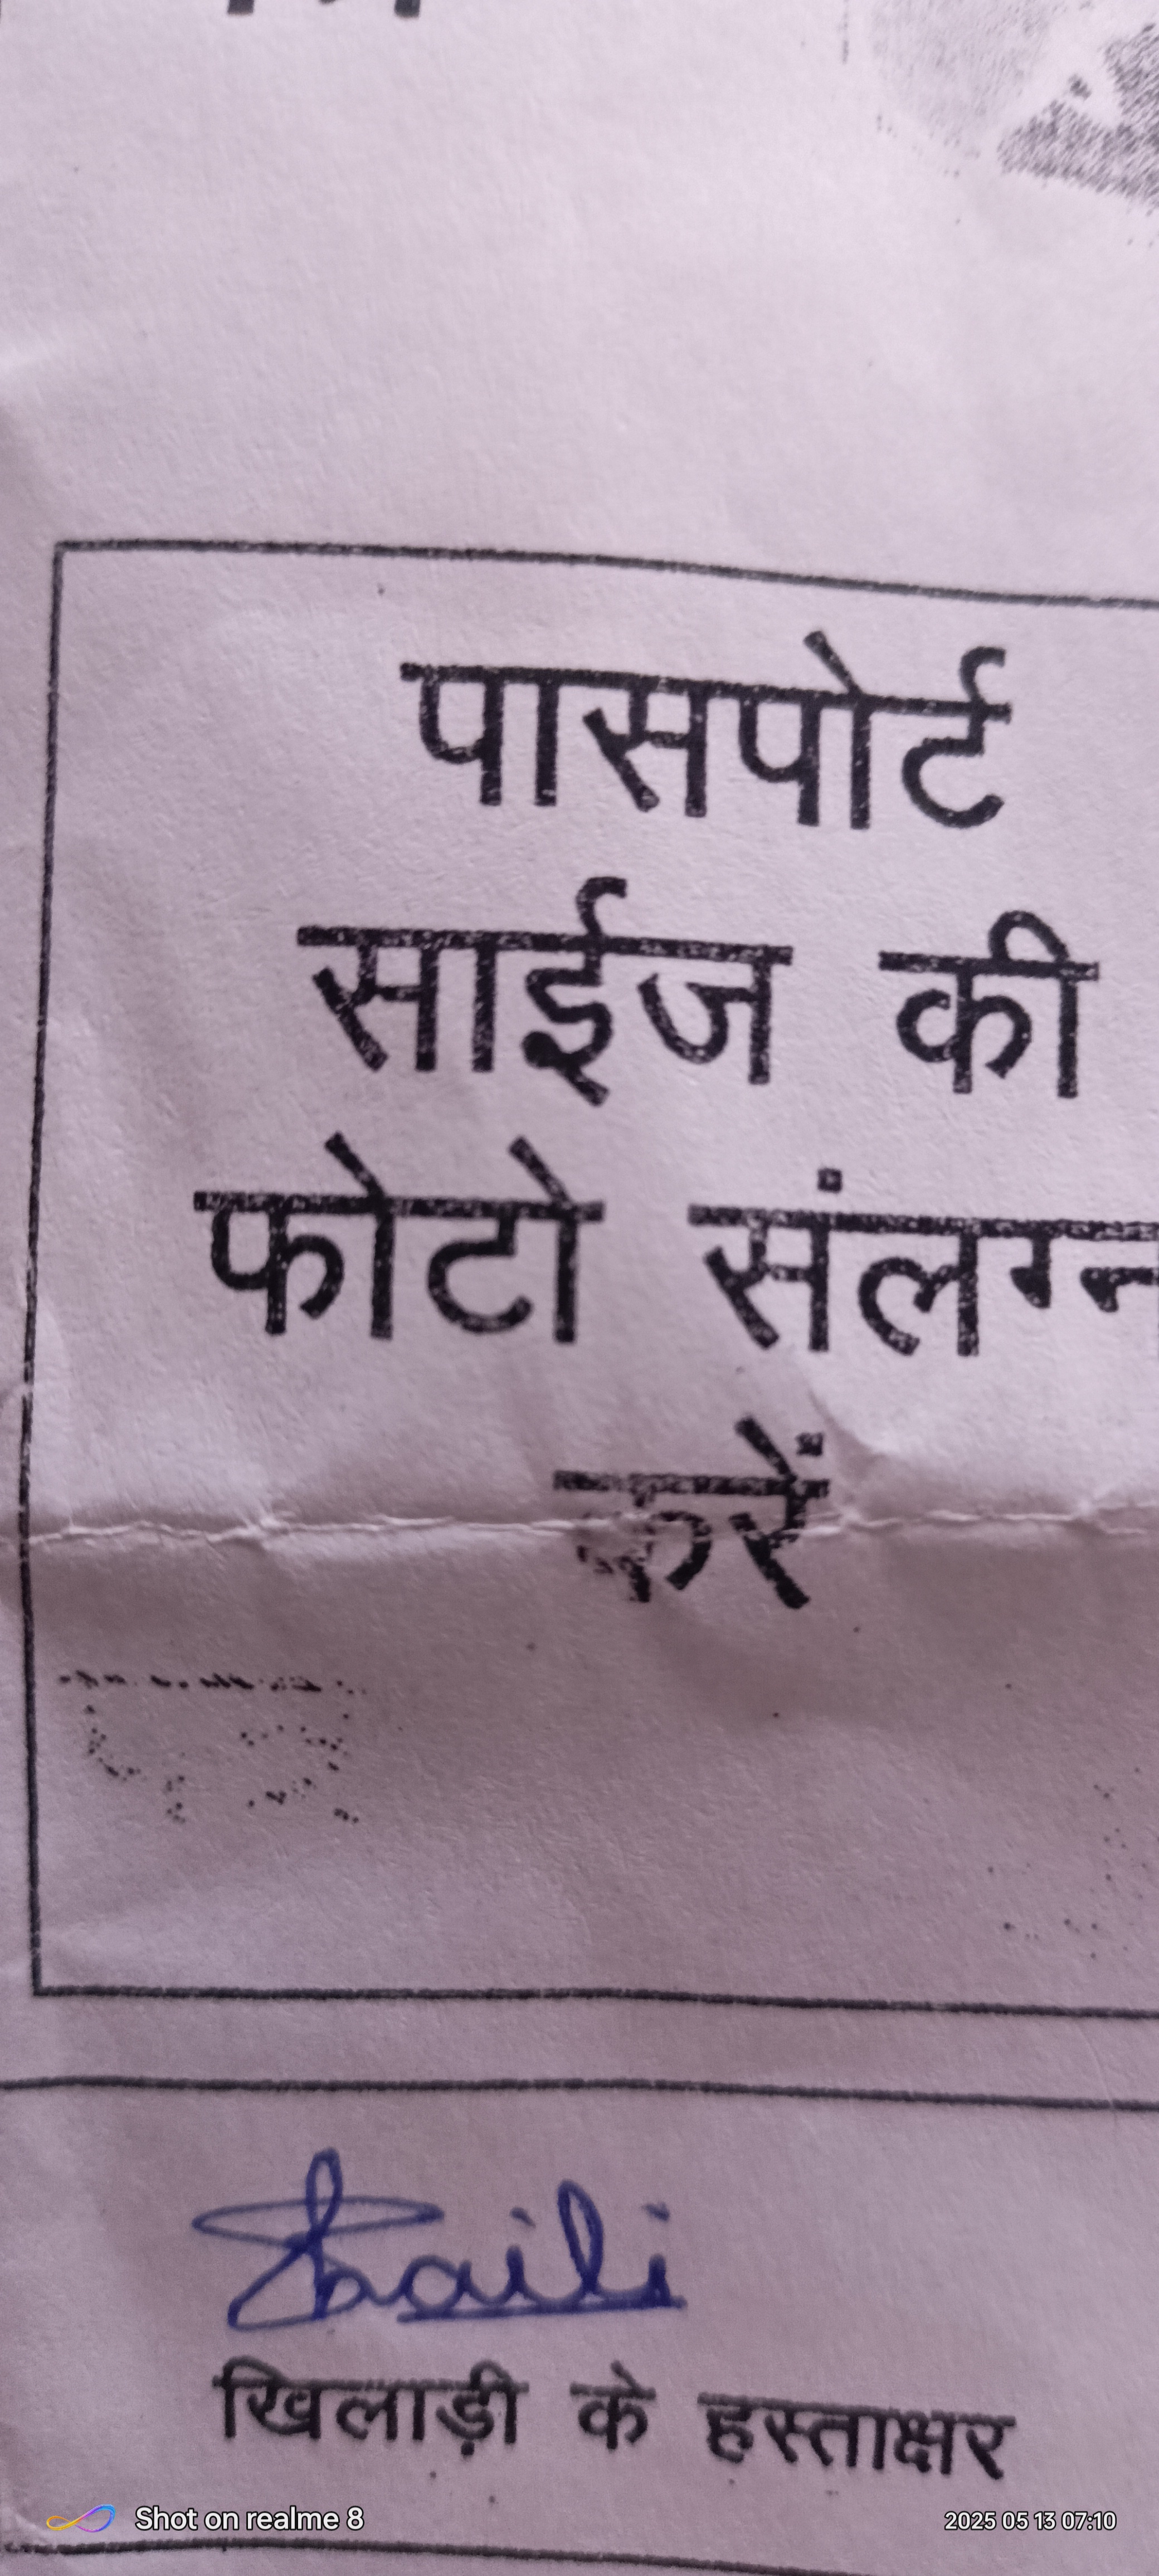 पासपोर्ट
साईज की
फोटो संलग्न
करें
Shaili
खिलाड़ी के हस्ताक्षर
Shot on realme 8
2025 05 13 07:10